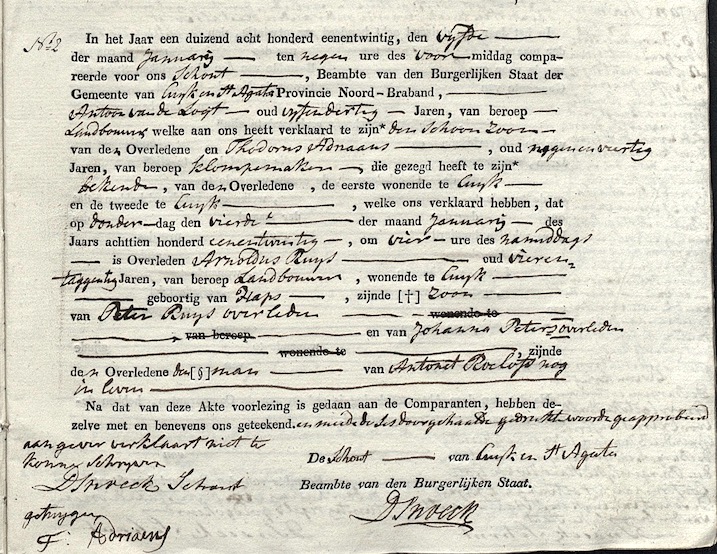 No 2
In het Jaar een duizend acht honderd eenentwintig, den vyfde
der maand Januarij ten negen ure des voor middag compa-
reerde voor ons Schout, Beambte van den Burgerlijken Staat der
Gemeente van Cuyk en St Agata Provincie Noord-Braband,
Antoon van de Logt oud vyfendertig Jaren, van beroep
Landbouwer welke aan ons heeft verklaard te zijn* den Schoon Zoon
van den Overledene en Thodorus Adriaans, oud negenenveertig
Jaren, van beroep Klompemaker die gezegd heeft te zijn*
bekende, van den Overledene, de eerste wonende te Cuyk
en de tweede te Cuyk, welke ons verklaard hebben, dat
op donder-dag den vierde der maand Januarij des
Jaars achttien honderd eenentwintig, om vier ure des namiddags
is Overleden Arnoldus Ruys oud vieren-
taggentig Jaren, van beroep Landbouwer, wonende te Cuyk
geboortig van Haps, zijnde [†] Zoon
van Peter Ruys overleden wonende te
van beroep en van Johanna Peters overleden
wonende te, zijnde
den Overledene den [§] man van Antonet Roelofs nog
in leven
Na dat van deze Akte voorlezing is gedaan aan de Comparanten, hebben de-
zelve met en benevens ons geteekend. en mede de doorgehaalde gedrukte woorde geapprobeerd
aangever verklaart niet te
konne Schryven
De Schout van Cuyk en St Agata
Schout
Beambte van den Burgerlijken Staat.
getuygen
Adriaens